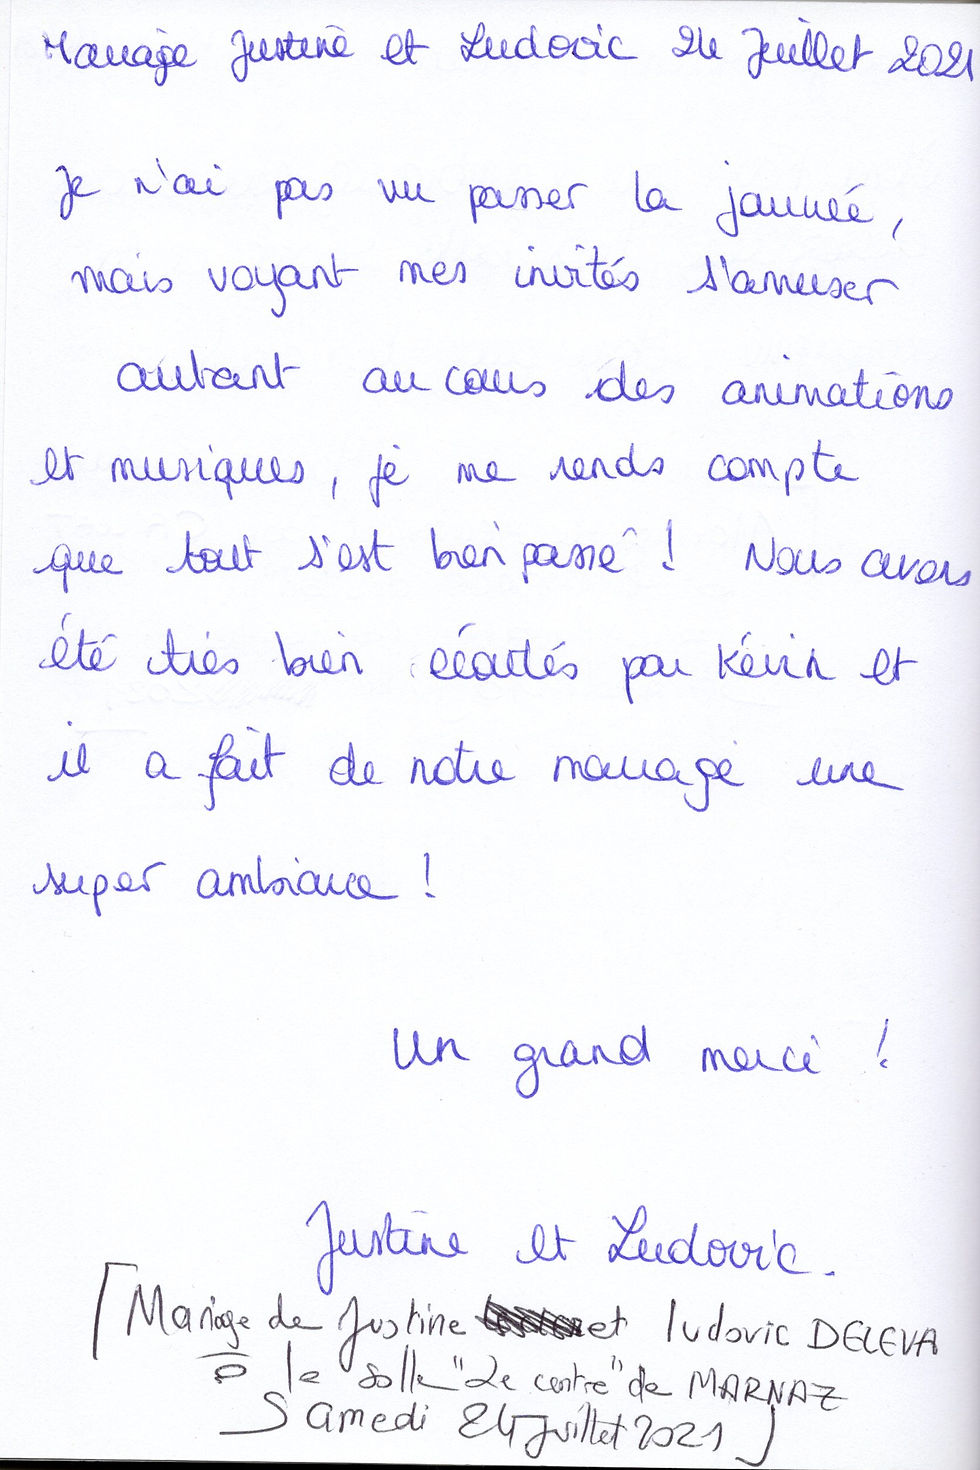 Mariage Justine et Ludovic 24 Juillet 2021
Je n'ai pas vu passer la journée,
mais voyant mes invités s'amuser
autant au cours des animations
et musiques, je me rends compte
que tout s'est bien passé ! Nous avons
été très bien écoutés par Kévin et
il a fait de notre mariage une
super ambiance !
Un grand merci !
Justine et Ludovic.
[Mariage de Justine et Ludovic DELEVA
à la salle "Le centre" de MARNAZ
Samedi 24 juillet 2021]